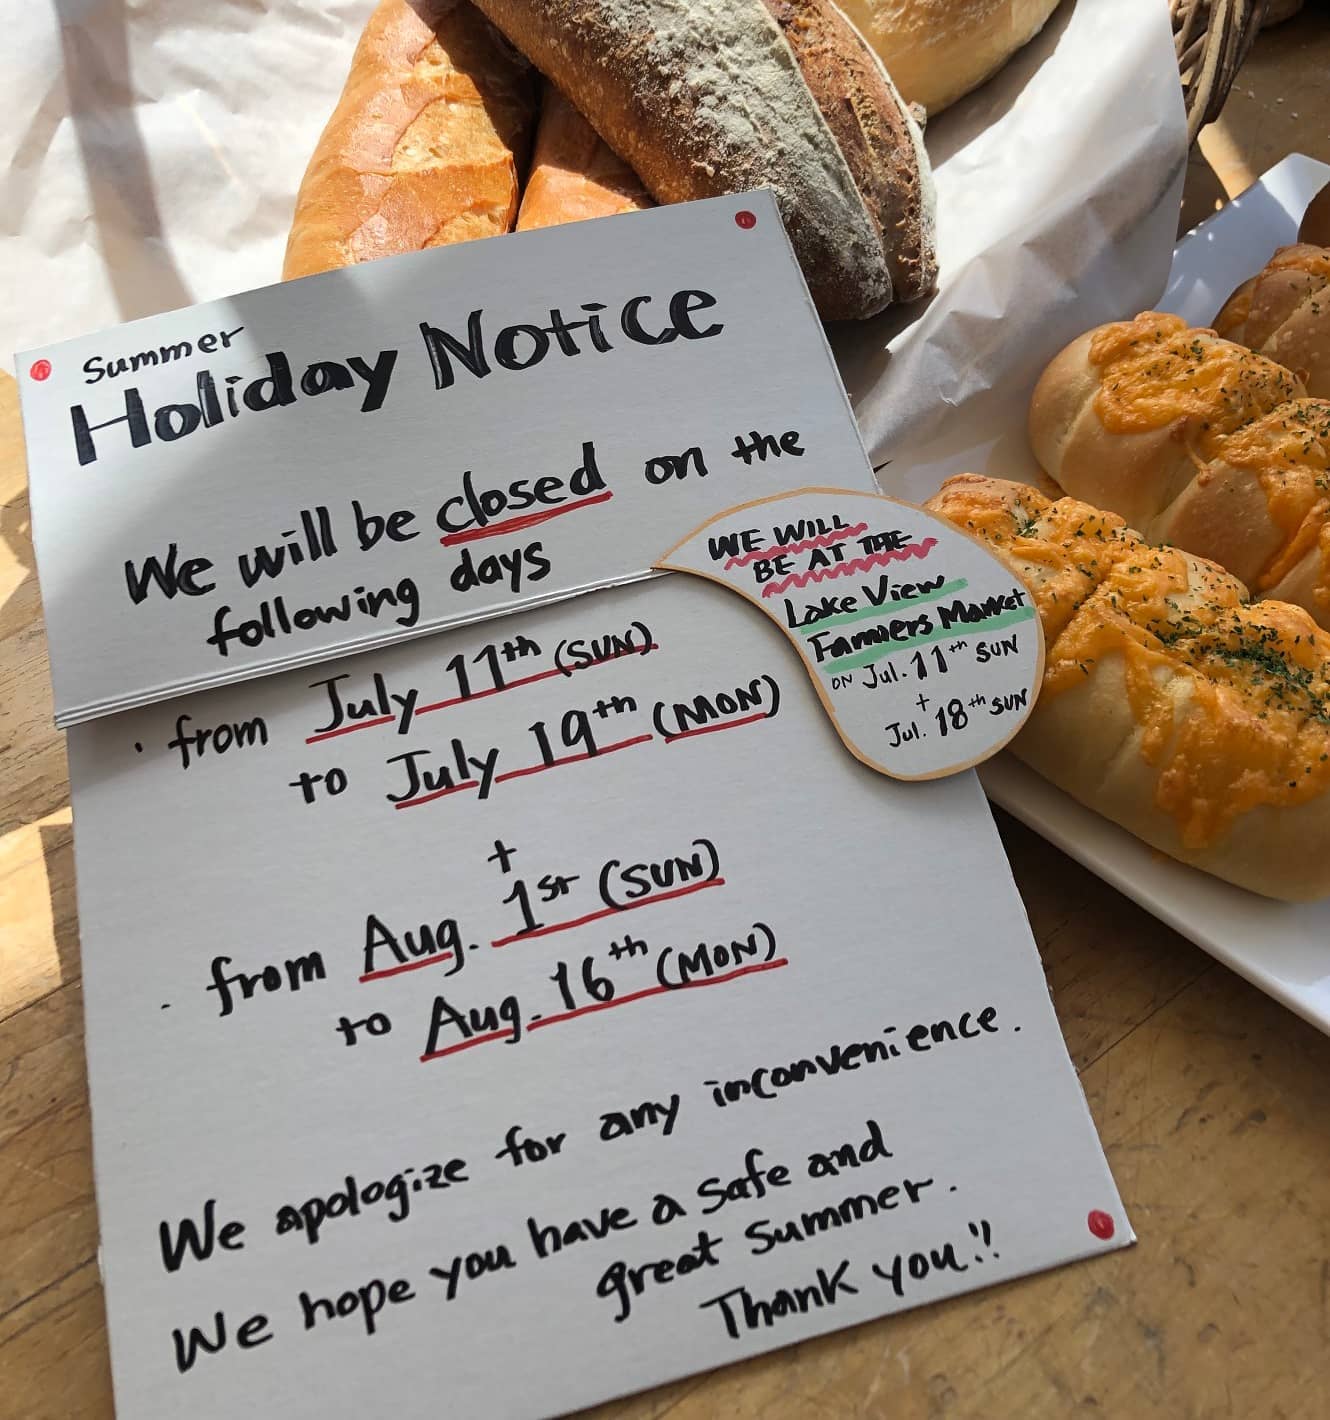 Summer
Holiday Notice
We will be closed on the
following days
· from July 11th (SUN)
to July 19th (MON)
+
· from Aug. 1st (SUN)
to Aug. 16th (MON)
We apologize for any inconvenience.
We hope you have a safe and
great summer.
Thank you!!
WE WILL
BE AT THE
Lake View
Farmers Market
ON Jul. 11th SUN
+
Jul. 18th SUN